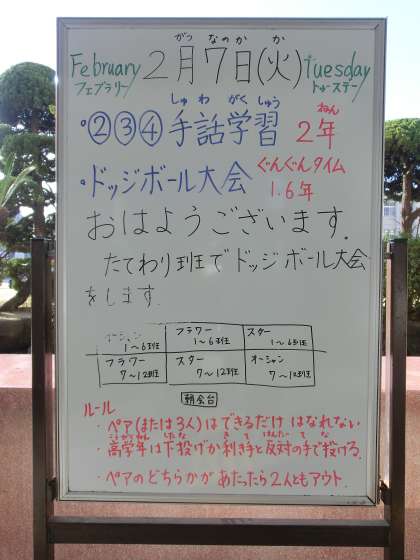 がつ なのか か
February 2月7日(火) Tuesday
フェブラリー トゥーズデー
しゅわ がくしゅう ねん
・②③④ 手話学習 2年
・ドッジボール大会 ぐんぐんタイム
1.6年
おはようございます.
たてわり班でドッジボール大会
をします.
オーシャン 1〜6班 フラワー 1〜6班 スター 1〜6班
フラワー 7〜12班 スター 7〜12班 オーシャン 7〜12班
朝会台
ルール
・ペア(または3人)はできるだけはなれない
こうがくねん したな き て はんたい て な
・高学年は下投げか利き手と反対の手で投げる.
・ペアのどちらかがあたったら2人ともアウト.